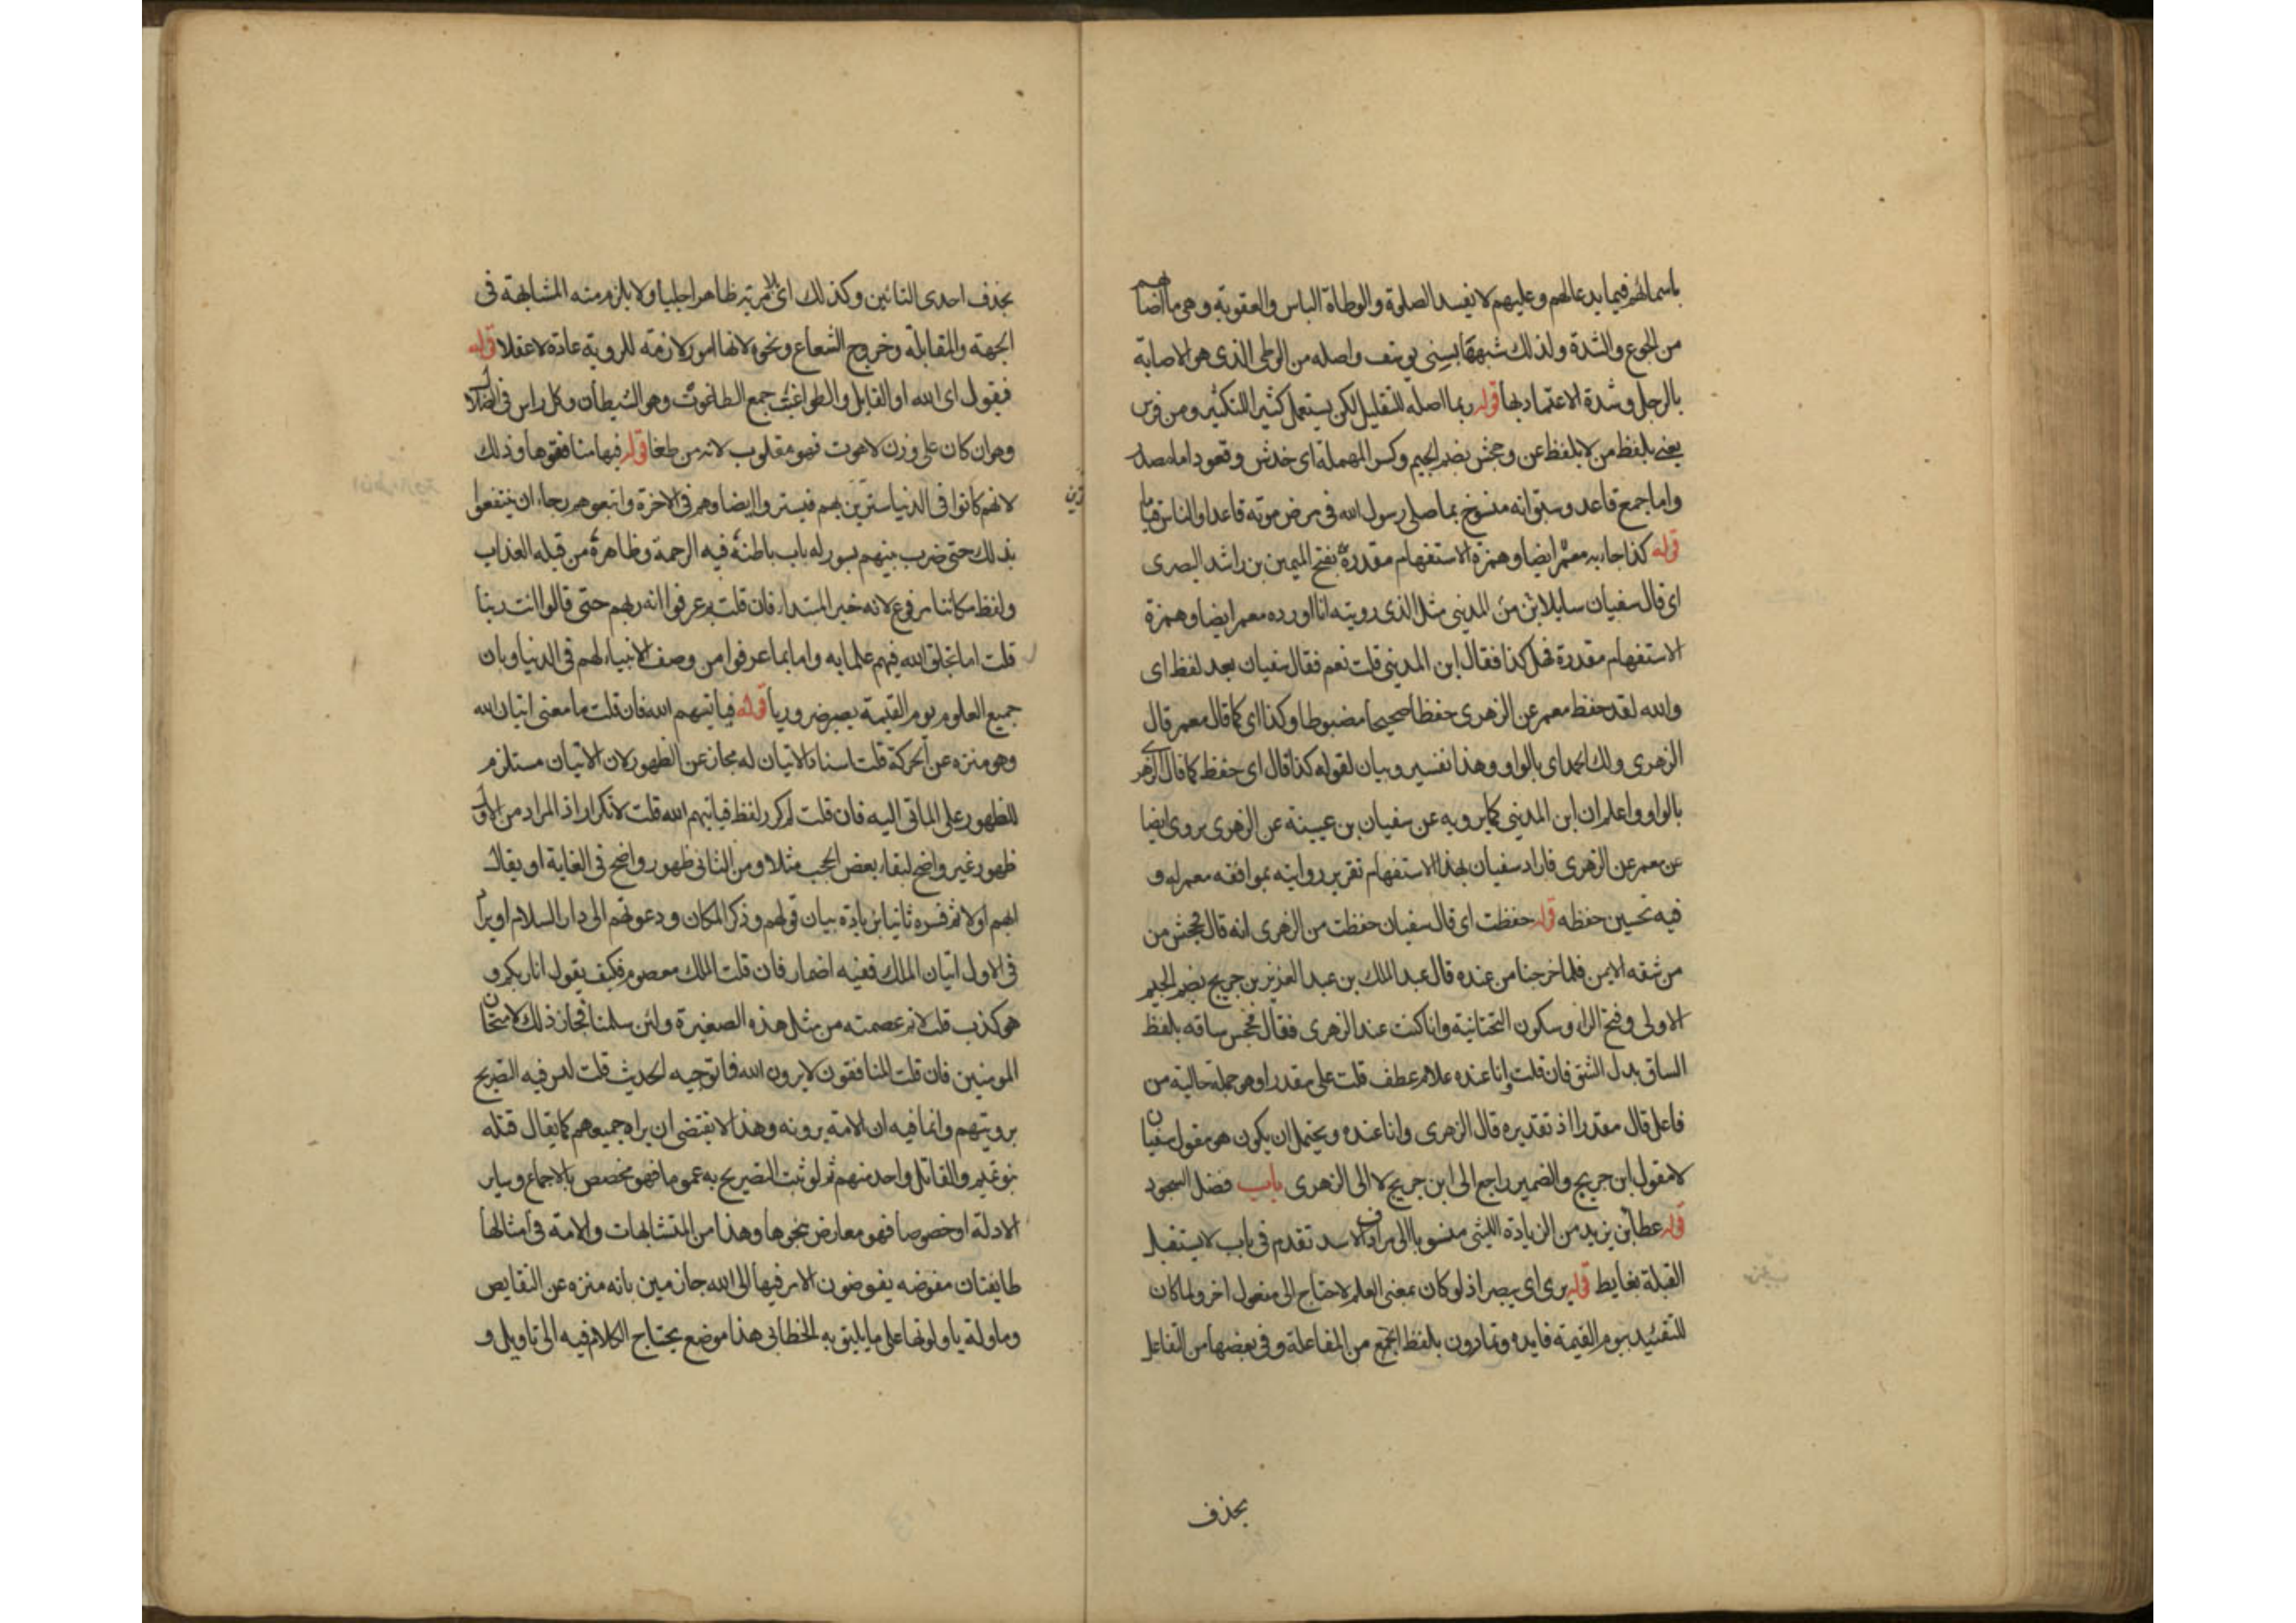 باسمائهم فيما يدعا لهم وعليهم لا تفسد الصلوة والوطاة الباس والعقوبة وهي ما اصابهم
من الجوع والشدة ولذلك شبهها بسني يوسف واصله من الوطى الذى هو الاصابة
بالرجل وشدة الاعتماد بها قوله ربما اصله للتقليل لكن يستعمل كثيرا للتكثير ومن فرس
يعنى بلفظ من لا بلفظ عن وجحش بضم الجيم وكسر المهملة اى خدش وقعود اما مصدر
واما جمع قاعد وسبق انه منسوخ بما صلى رسول الله فى مرض موته قاعدا والناس قياما
قوله كذا جاء به معمر ايضا وهمزة الاستفهام مقدرة بفتح الميمين بن راشد البصرى
اى قال سفيان سايلا من بن المدينى مثل الذى رويته انا اورده معمر ايضا وهمزة
الاستفهام مقدرة قبل كذا فقال ابن المدينى قلت نعم فقال سفيان بعد لفظ اى
والله لقد حفظ معمر عن الزهرى حفظا صحيحا مضبوطا وكذا اى كما قال معمر قال
الزهرى ولك الحمد اى بالواو وهذا تفسير وبيان لقوله كذا قال اى حفظ كما قال الزهرى
بالواو واعلم ان ابن المدينى كما يرويه عن سفيان بن عيينة عن الزهرى يروى ايضا
عن معمر عن الزهرى فاراد سفيان بهذا الاستفهام تقرير روايته بموافقه معمر له و
فيه تحسين حفظه قوله حفظت اى قال سفيان حفظت من الزهرى انه قال فجحش من
من شقه الايمن فلما خرجنا من عنده قال عبد الملك بن عبد العزيز بن جريج بضم الجيم
الاولى وفتح الراء وسكون التحتانية وانا كنت عند الزهرى فقال فجحش ساقه بلفظ
الساق بدل الشق فان قلت وانا عنده علام عطف قلت على مقدر او هو جملة حالية من
فاعل قال مقدرا اذ تقديره قال الزهرى وانا عنده ويحتمل ان يكون هو مقول سفيان
لا مقول ابن جريج والضمير راجع الى ابن جريج لا الى الزهرى باب فضل السجود
قوله عطا بن يزيد من الزيادة الليثى منسوبا الى مرادف الاسد تقدم فى باب لا يستقبل
القبلة بغايط قوله يرى اى يبصر اذ لو كان بمعنى العلم لاحتاج الى مفعول اخر ولما كان
للتقييد بيوم القيمة فايده وتمارون بلفظ الجمع من المفاعلة وفى بعضها من التفاعل
بحذف
بحذف احدى التائين وكذلك اى ترونه ظاهرا جليا ولا يلزم منه المشابهة فى
الجهة والمقابلة وخروج الشعاع ونحوه لانها امور لازمة للروية عادة لا عقلا قوله
فيقول اى الله او القايل والطواغيت جمع الطاغوت وهو الشيطان وكل راس فى الضلال
وهو ان كان على وزن لاهوت فهو مقلوب لانه من طغا قوله فيها منافقوها وذلك
لانهم كانوا فى الدنيا ستترين بهم فيستروا ايضا وهم فى الاخرة واتبعوهم رجاء ان ينتفعوا
بذلك حتى ضرب بينهم بسور له باب باطنه فيه الرحمة وظاهره من قبله العذاب
ولفظ مكاننا مرفوع لانه خبر المبتداء فان قلت بم عرفوا انه ربهم حتى قالوا انت ربنا
قلت اما بخلق الله فيهم علما به واما بما عرفوا من وصف الانبياء لهم فى الدنيا وبان
جميع العلوم يوم القيمة يصير ضروريا قوله فياتيهم الله فان قلت ما معنى اتيان الله
وهو منزه عن الحركة قلت اسناد الاتيان له مجاز عن الظهور لان الاتيان مستلزم
للظهور على الماتى اليه فان قلت لم كرر لفظ فياتيهم الله قلت لا تكرار اذ المراد من الاول
ظهور غير واضح لبقاء بعض الحجب مثلا ومن الثانى ظهور واضح فى الغاية او يقال
ابهم اولا ثم فسره ثانيا بزيادة بيان قولهم وذكر المكان ودعوتهم الى دار السلام او يراد
فى الاول اتيان الملك ففيه اضمار فان قلت الملك معصوم فكيف يقول انا ربكم و
هو كذب قلت لا نم عصمته من مثل هذه الصغيرة ولئن سلمنا فجاز ذلك لامتحان
المومنين فان قلت المنافقون لا يرون الله فما توجيه الحديث قلت ليس فيه التصريح
برويتهم وانما فيه ان الامة يرونه وهذا لا يقتضى ان يراه جميعهم كما يقال قتله
بنو تميم والقاتل واحد منهم ثم لو ثبت التصريح به عموما فهو مخصص بالاجماع وساير
الادلة او خصوصا فهو معارض بنحوها وهذا من المتشابهات والامة فى امثالها
طايفتان مفوضه يفوضون الامر فيها الى الله جازمين بانه منزه عن النقايص
وماولة ياولونها على ما يليق به الخطابى هذا موضع يحتاج الكلام فيه الى تاويل و